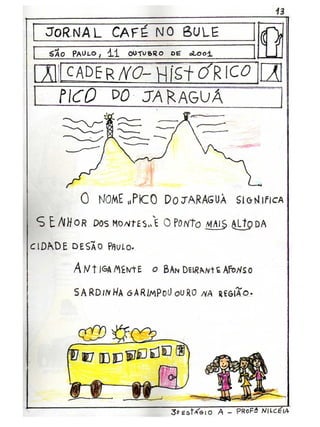 13
JORNAL CAFÉ NO BULE
SÃO PAULO, 11 OUTUBRO DE 2001
CADERNO-HISTÓRICO
PICO DO JARAGUÁ
O NOME „PICO DO JARAGUÁ SIGNIFICA
SENHOR DOS MONTES„É O PONTO MAIS ALTO DA
CIDADE DE SÃO PAULO.
ANTIGAMENTE O BANDEIRANTE AFONSO
SARDINHA GARIMPOU OURO NA REGIÃO.
3º ESTÁGIO A - PROFª NILCÉIA